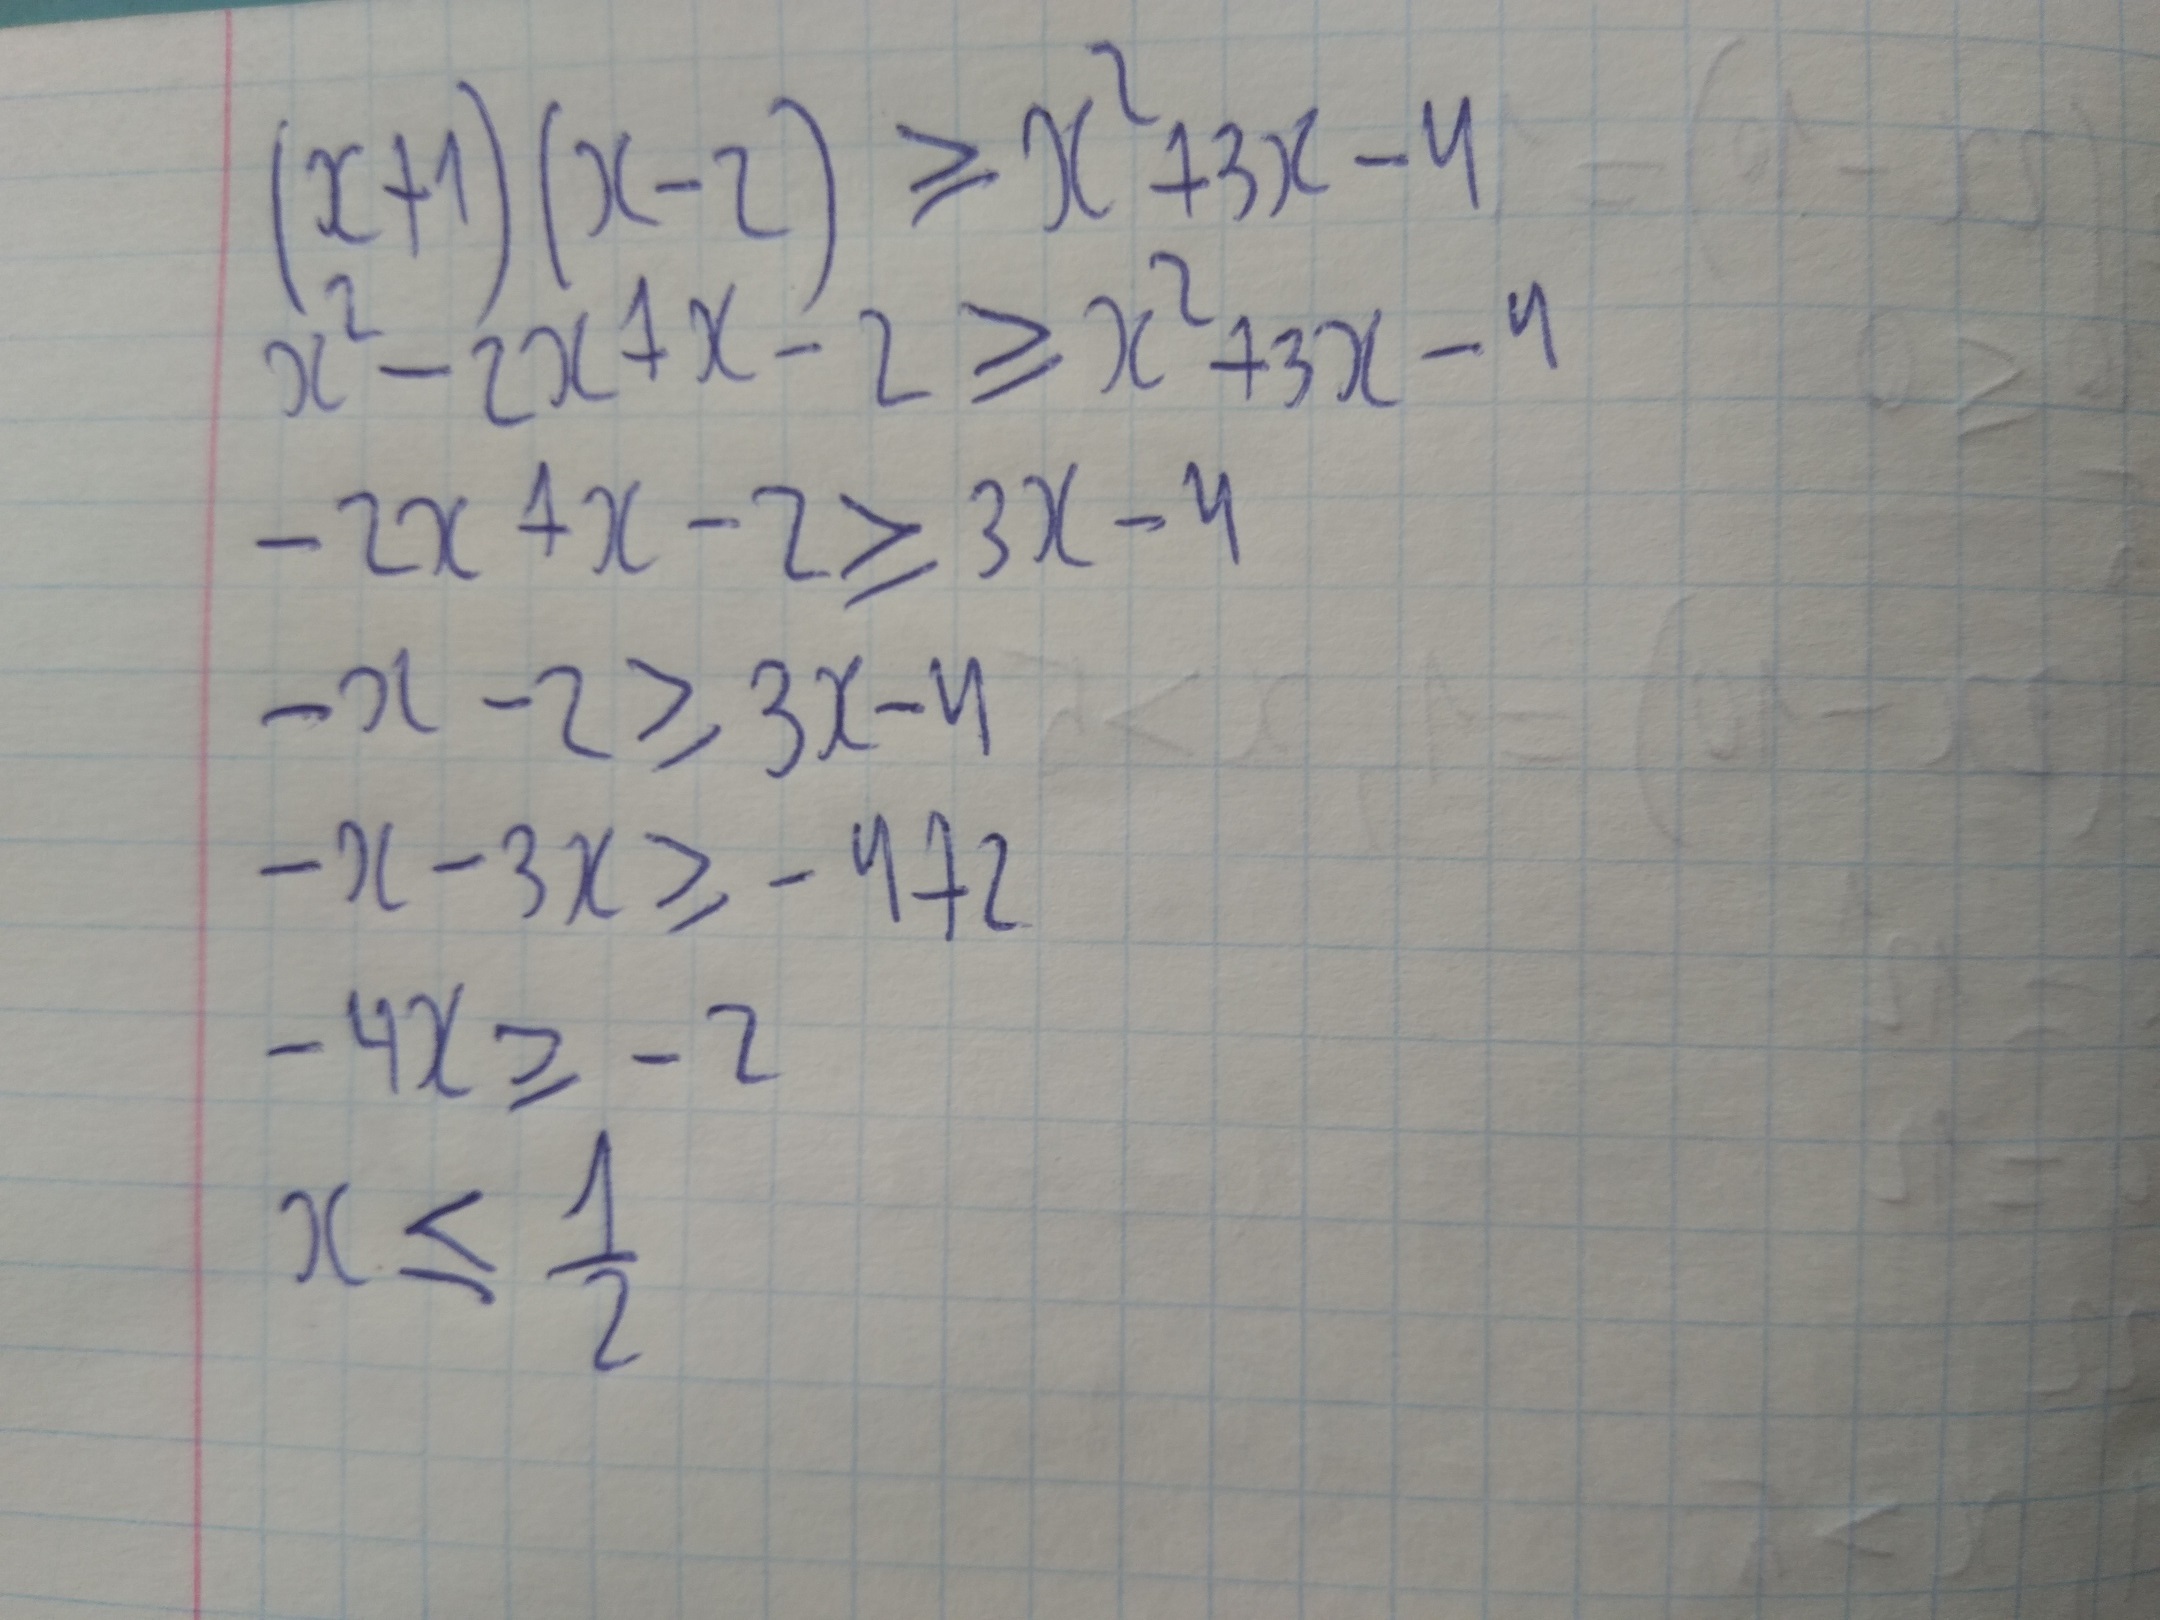 (x+1)(x-2) ⩾ x²+3x-4
x²-2x+x-2 ⩾ x²+3x-4
-2x+x-2 ⩾ 3x-4
-x-2 ⩾ 3x-4
-x-3x ⩾ -4+2
-4x ⩾ -2
x ⩽ 1/2